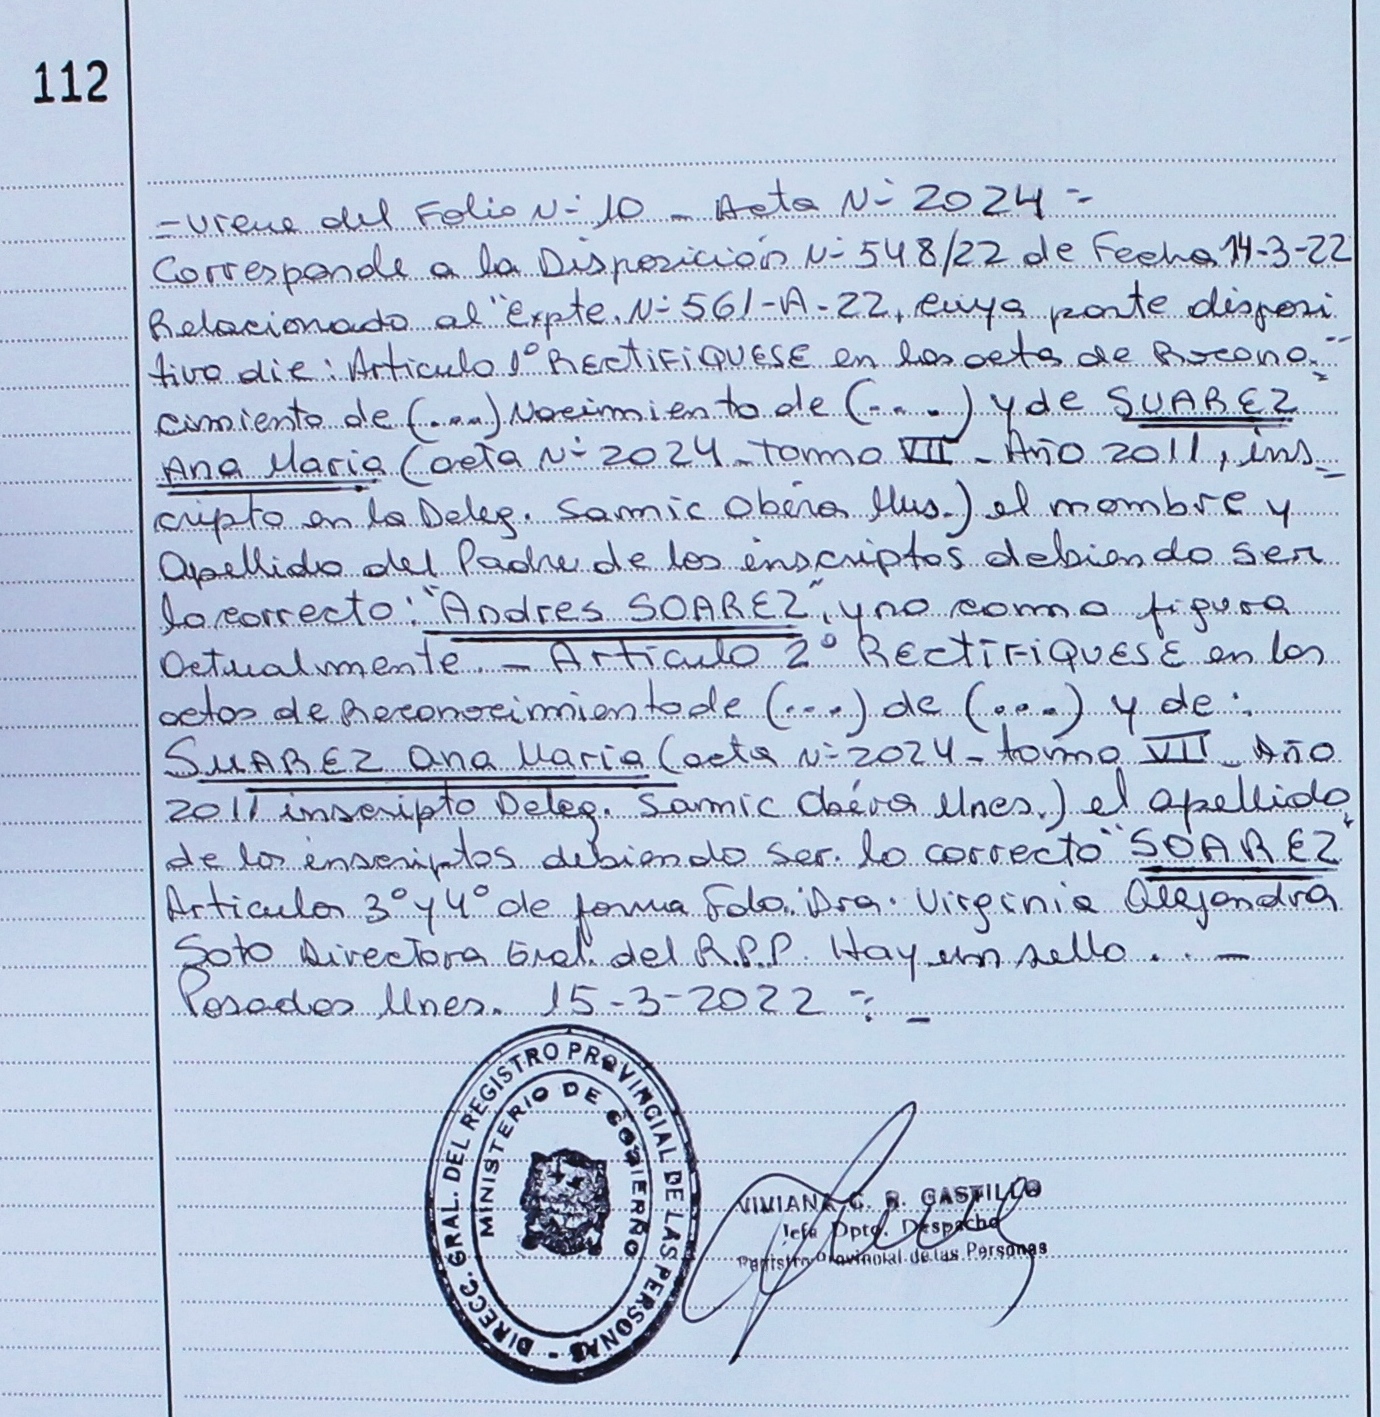 112
=Viene del Folio N- 10 - Acta N- 2024 =
Corresponde a la Disposición N- 548/22 de Fecha 14-3-22
Relacionado al "Expte. N- 561-A-22, cuya parte disposi
tiva dic: Articulo 1º RECTIFIQUESE en las acta de Recono=
cimiento de (...) Nacimiento de (...) y de SUAREZ
Ana Maria (acta N- 2024 - tomo VII - Año 2011, ins_
cripto en la Deleg. Samic Oberá Mns.) el nombre y
Apellido del Padre de los inscriptos debiendo ser
lo correcto: "Andres SOAREZ", y no como figura
actualmente. - Articulo 2º RECTIFIQUESE en las
actas de Reconocimiento de (...) de (...) y de:
SUAREZ Ana Maria (acta N- 2024 - tomo VII - Año
2011 inscripto Deleg. Samic Oberá Mnes.) el apellido
de los inscriptos debiendo ser lo correcto "SOAREZ"
Articulos 3º y 4º de forma Fdo. Dra. Virginia Alejandra
Soto Directora Gral. del R.P.P. Hay un sello. . -
Posadas Mnes. 15-3-2022 = -
DIRECC. GRAL. DEL REGISTRO PROVINCIAL DE LAS PERSONAS -
MINISTERIO DE GOBIERNO
VIVIANA G. R. CASTILLO
Jefa Dpto. Despacho
Registro Provincial de las Personas